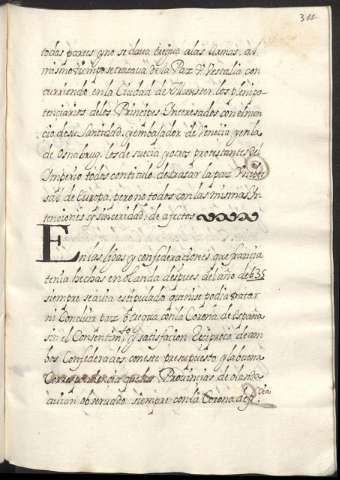 311
todas partes, y no se daua treguas a las armas, al
mismo tiempo se trataua de la Paz de Vestfalia con
curriendo en la Ciudad de Munster los plenipo-
tenciarios de los Principes Interesados con el nun-
cio de su Santidad, y embaxador de Venecia, y en la
de Osnabrug, los de suecia y otros protestantes del
Imperio todos con titulo de tratar la paz Vniver-
sal de Europa, pero no todos con las mismas In-
tenciones y sinceridad de afectos
En las ligas y confederaciones que francia
tenia hechas en olanda despues del año de 635
siempre se auia estipulado que no se podia tratar
ni Concluir paz o tregua con la Corona de España
sin el Consentimto. y satisfacion Reciproca de am
bos Confederados con este presupuesto y la buena
que las Provincias de olanda
auian observado siempre con la Corona de fr.